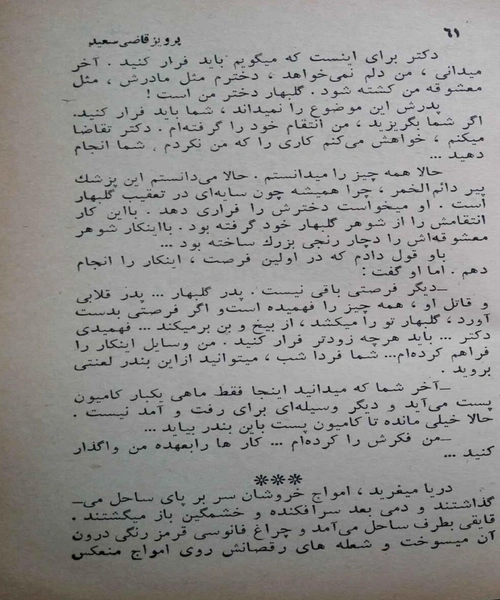 ۶۱
پرویز قاضی سعید
دکتر برای اینست که میگویم باید فرار کنید . آخر
میدانی ، من دلم نمی‌خواهد ، دخترم مثل مادرش ، مثل
معشوقه من کشته شود . گلبهار دختر من است !
پدرش این موضوع را نمیداند ، شما باید فرار کنید.
اگر شما بگریزید ، من انتقام خود را گرفته‌ام . دکتر تقاضا
میکنم ، خواهش می‌کنم کاری را که من نکردم . شما انجام
دهید ...
حالا همه چیز را میدانستم . حالا می‌دانستم این پزشك
پیر دائم‌الخمر ، چرا همیشه چون سایه‌ای در تعقیب گلبهار
است . او میخواست دخترش را فراری دهد . بااین کار
انتقامش را از شوهر گلبهار خود گرفته بود . بااینکار شوهر
معشوقه‌اش را دچار رنجی بزرك ساخته بود ...
باو قول دادم که در اولین فرصت ، اینکار را انجام
دهم . اما او گفت :
ـ دیگر فرصتی باقی نیست . پدر گلبهار ... پدر قلابی
و قاتل او ، همه چیز را فهمیده است‌و اگر فرصتی بدست
آورد ، گلبهار تو را میکشد ، از بیخ و بن برمیکند ... فهمیدی
دکتر ... باید هرچه زودتر فرار کنید . من وسایل اینکار را
فراهم کرده‌ام... شما فردا شب ، میتوانید ازاین بندر لعنتی
بروید .
ـ آخر شما که میدانید اینجا فقط ماهی یکبار کامیون
پست می‌آید و دیگر وسیله‌ای برای رفت و آمد نیست .
حالا خیلی مانده تا کامیون پست باین بندر بیاید ...
ـ من فکرش را کرده‌ام ... کار ها رابعهده من واگذار
کنید ...
***
دریا میغرید ، امواج خروشان سر بر پای ساحل می‌ـ
گذاشتند و دمی بعد سرافکنده و خشمگین باز میگشتند .
قایقی بطرف ساحل می‌آمد و چراغ فانوسی قرمز رنگی درون
آن میسوخت و شعله های رقصانش روی امواج منعکس